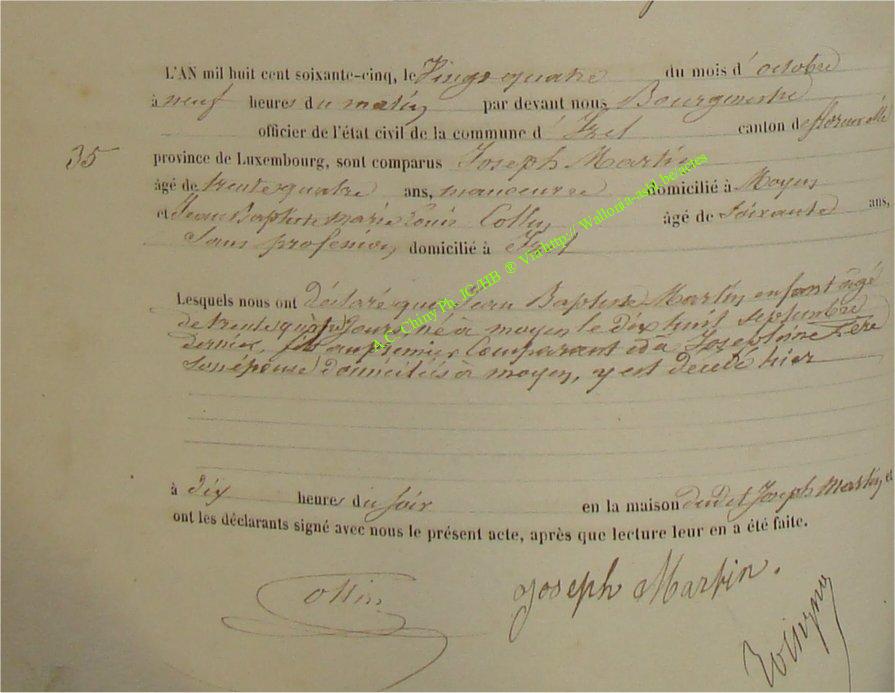 L'AN mil huit cent soixante-cinq, le Vingt quatre du mois d'octobre
à neuf heures du matin par devant nous Bourgmestre
officier de l'état civil de la commune d'Izel canton de florenville
35 province de Luxembourg, sont comparus Joseph Martin
âgé de trente quatre ans, manoeuvre domicilié à Moyen
et Jean Baptiste Marie Louis Collin âgé de soixante ans,
sans profession domicilié à Izel
Lesquels nous ont déclaré que Jean Baptiste Martin enfant âgé
de trente quatre jours né à moyen le dix huit septembre
dernier, fils au premier Comparant et à Joséphine
son épouse domiciliés à moyen, y est décédé hier
à dix heures du soir en la maison dudit Joseph Martin et
ont les déclarants signé avec nous le présent acte, après que lecture leur en a été faite.
Collin Joseph Martin.
A.C. Chiny Ph. JC/HB ® Via http:// Wallonia-asbl.be/actes